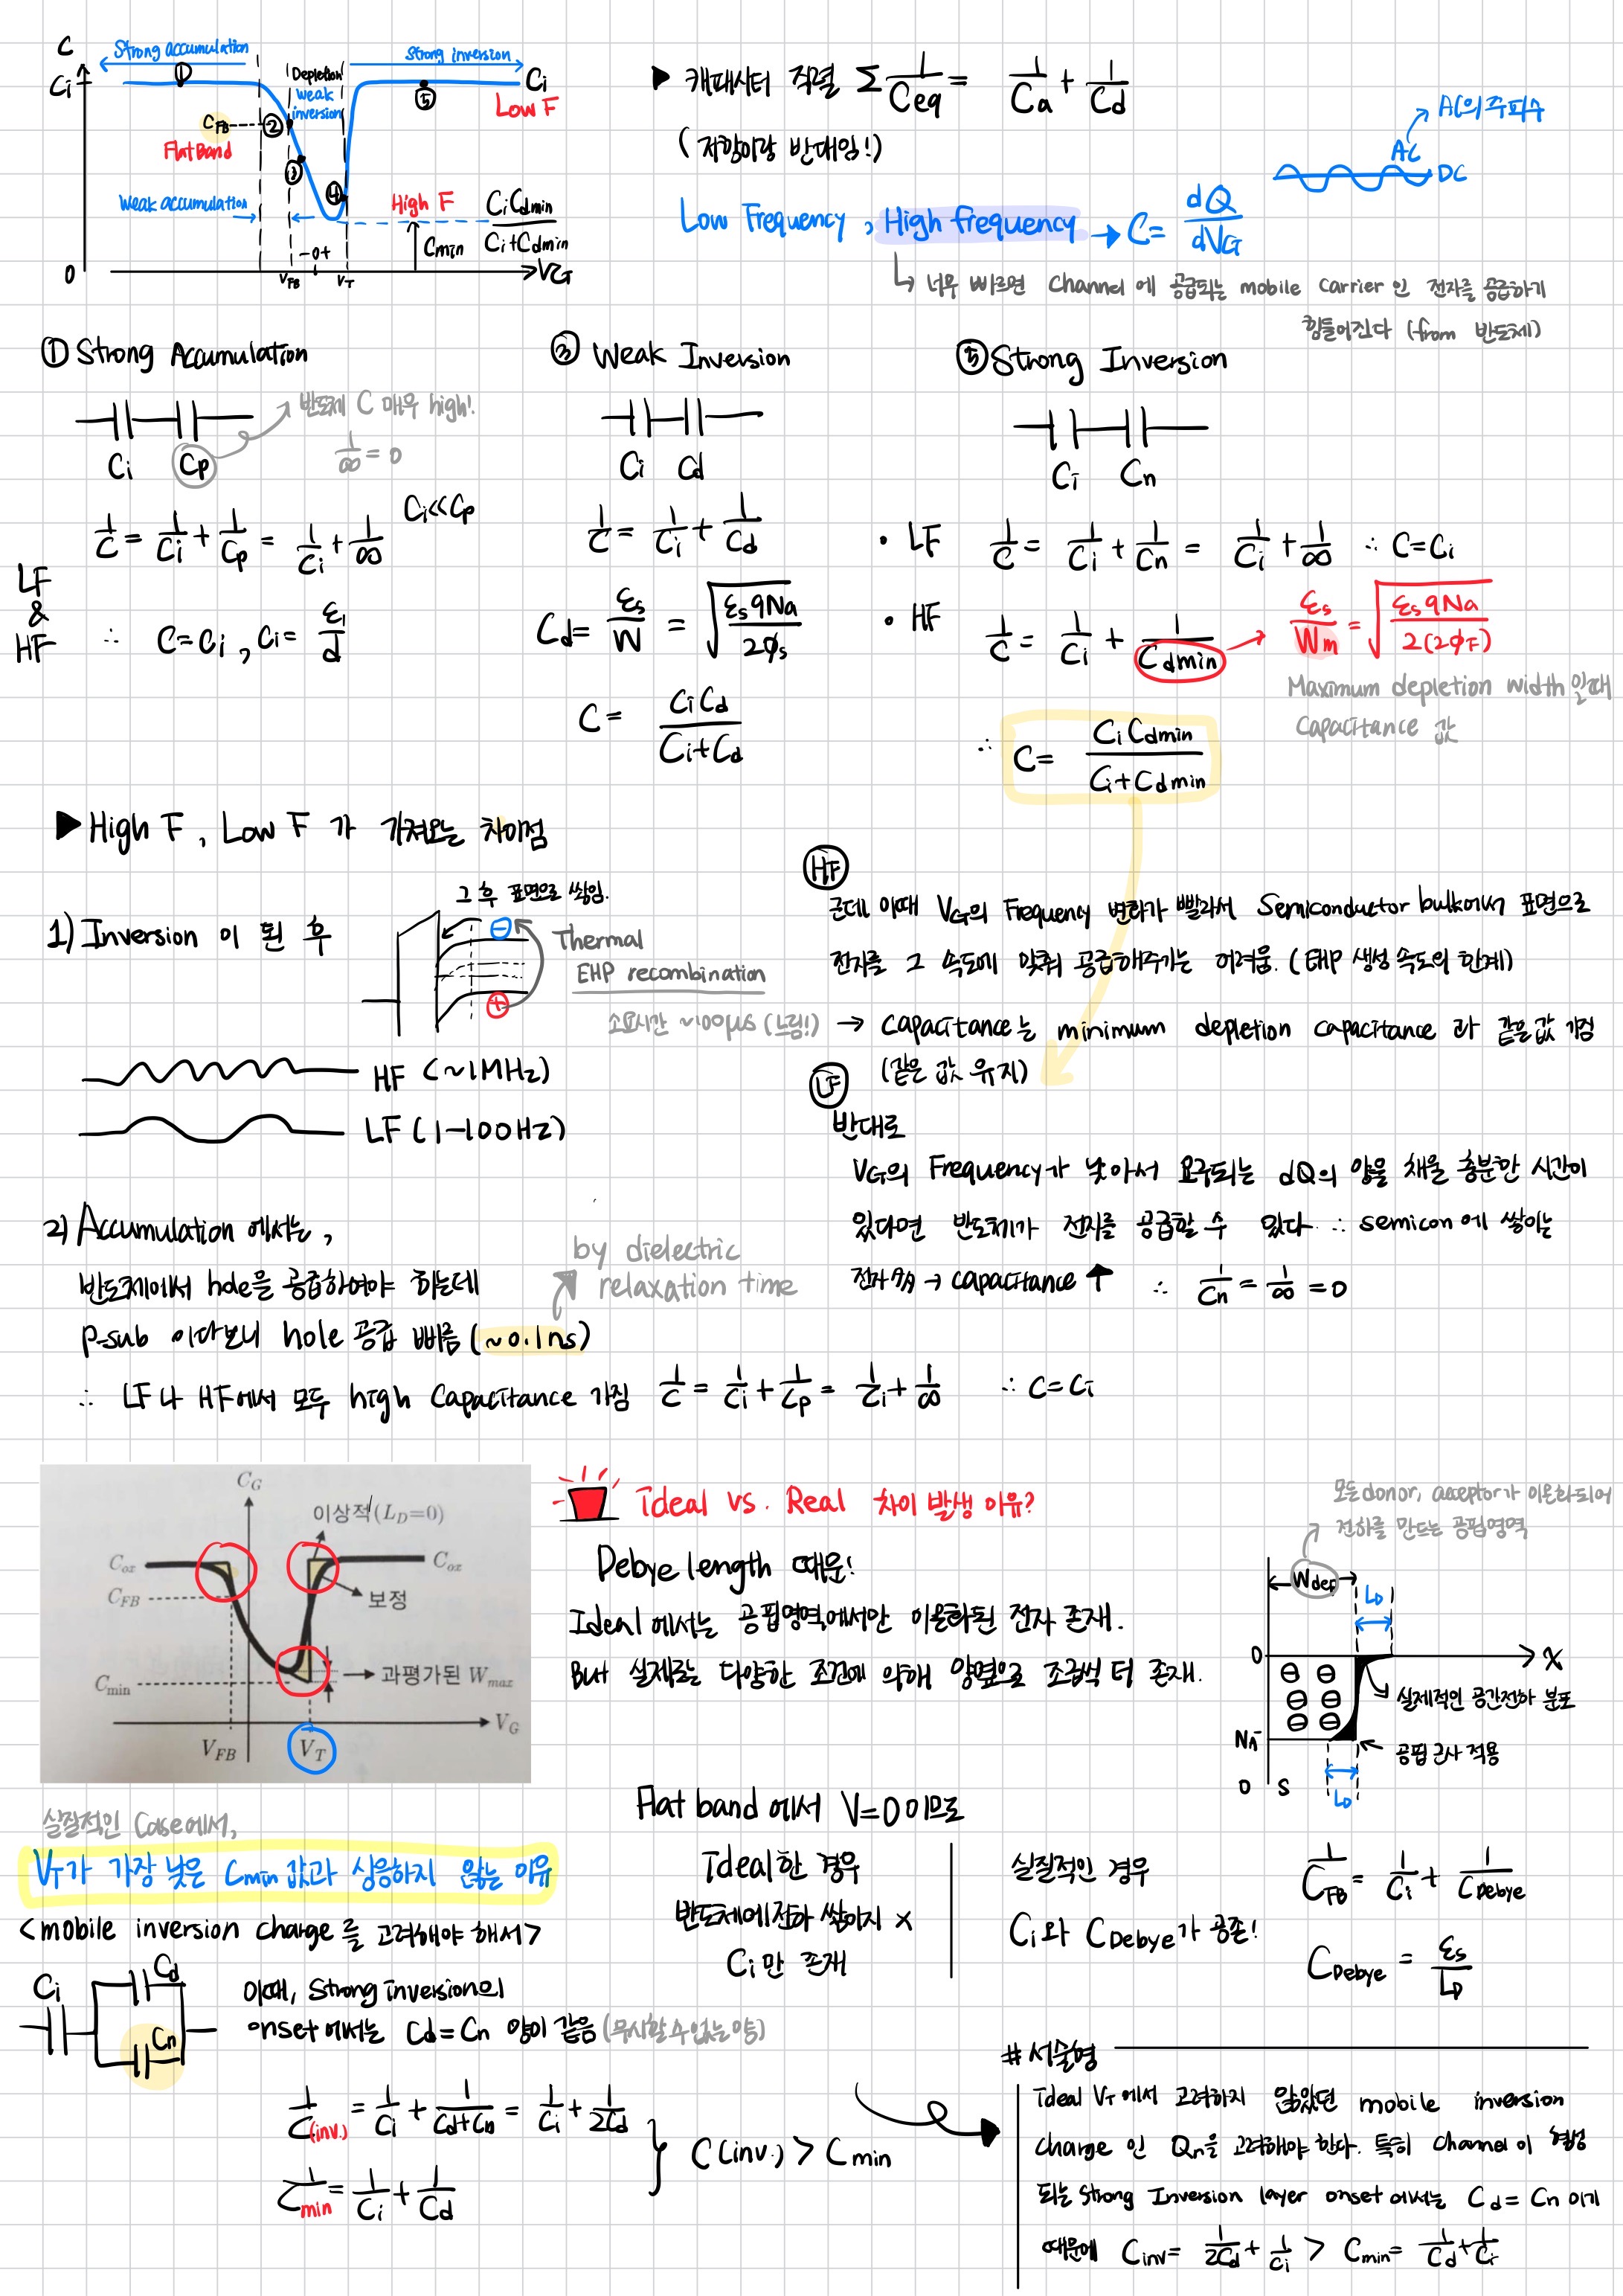 C
Strong accumulation
Strong inversion
Ci
①
Depletion
weak
inversion
Ci
⑤
Low F
CFB
②
Flat Band
③
④
Weak accumulation
High F
CiCdmin / Ci+Cdmin
Cmin
0
VFB
-0+
VT
VG
▶ 캐패시터 직렬 Σ 1/Ceq = 1/Ca + 1/Cd
(저항이랑 반대임!)
AC의 주파수
AC
DC
Low Frequency, High frequency → C= dQ/dVG
↳ 너무 빠르면 channel 에 공급되는 mobile carrier 인 전자를 공급하기
힘들어진다 (from 반도체)
① Strong Accumulation
반도체 C 매우 high!
1/∞ = 0
Ci Cp
Ci≪Cp
1/C = 1/Ci + 1/Cp = 1/Ci + 1/∞
LF
&
HF
∴ C=Ci, Ci= εi/d
③ Weak Inversion
Ci Cd
1/C = 1/Ci + 1/Cd
Cd= εs/W = √(εs q Na / 2φs)
C= CiCd / Ci+Cd
⑤ Strong Inversion
Ci Cn
• LF 1/C = 1/Ci + 1/Cn = 1/Ci + 1/∞ ∴ C=Ci
• HF 1/C = 1/Ci + 1/Cdmin → εs/Wm = √(εs q Na / 2(2φF))
Maximum depletion width 일때
Capacitance 값
∴ C= CiCdmin / Ci+Cdmin
▶ High F, Low F 가 가져오는 차이점
1) Inversion 이 된 후
그 후 표면으로 쌓임.
Thermal
EHP recombination
소요시간 ~100μs (느림!)
HF (~1MHz)
LF (1-100Hz)
HF
근데 이때 VG의 Frequency 변화가 빨라서 Semiconductor bulk에서 표면으로
전자를 그 속도에 맞춰 공급해주기는 어려움. (EHP 생성 속도의 한계)
→ capacitance는 minimum depletion capacitance 과 같은값 가짐
(같은 값 유지)
LF
반대로
VG의 Frequency가 낮아서 요구되는 dQ의 양을 채울 충분한 시간이
있다면 반도체가 전자를 공급할 수 있다 ∴ semicon 에 쌓이는
전자 多 → capacitance ↑ ∴ 1/Cn = 1/∞ = 0
2) Accumulation 에서는,
반도체에서 hole을 공급하여야 하는데
by dielectric
relaxation time
p-sub 이다보니 hole 공급 빠름 (~0.1ns)
∴ LF나 HF에서 모두 high capacitance 가짐 1/C = 1/Ci + 1/Cp = 1/Ci + 1/∞ ∴ C=Ci
CG
이상적(LD=0)
Cox
Cox
CFB
보정
Cmin
과평가된 Wmax
VG
VFB
VT
Ideal vs. Real 차이 발생 이유?
Debye length 때문!
Ideal 에서는 공핍영역에서만 이온화된 전자 존재.
But 실제로는 다양한 조건에 의해 양옆으로 조금씩 더 존재.
모든 donor, acceptor가 이온화되어
전하를 만드는 공핍영역
Wdep
LD
0
x
실제적인 공간전하 분포
NA-
공핍 근사 적용
O S
LD
Flat band 에서 V=0 이므로
Ideal한 경우
반도체에 전하 쌓이지 x
Ci 만 존재
실질적인 경우
Ci와 CDebye가 공존!
1/CFB = 1/Ci + 1/CDebye
CDebye = εs/LD
실질적인 Case에서,
VT가 가장 낮은 Cmin 값과 상응하지 않는 이유
<mobile inversion charge를 고려해야 해서>
Ci
Cd
Cn
이때, Strong inversion의
onset 에서는 Cd=Cn 양이 같음 (무시할 수 없는 양)
1/C(inv.) = 1/Ci + 1/Cd+Cn = 1/Ci + 1/2Cd
1/Cmin = 1/Ci + 1/Cd
C(inv.) > Cmin
# 서술형
Ideal VT 에서 고려하지 않았던 mobile inversion
charge 인 Qn을 고려해야 한다. 특히 channel이 형성
되는 Strong Inversion layer onset 에서는 Cd=Cn 이기
때문에 Cinv= 1/2Cd + 1/Ci > Cmin= 1/Cd + 1/Ci